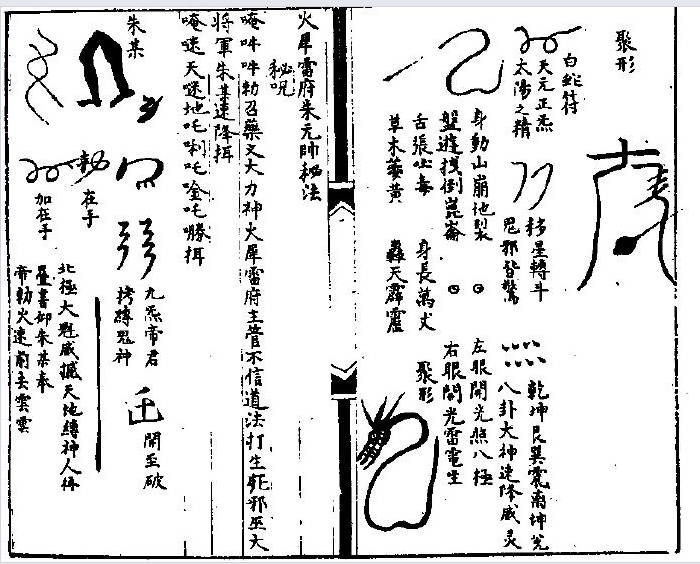 聚形
白蛇符
天元正炁
太陽之精
移星轉斗
鬼邪皆驚
乾坤艮巽震离坤兌
八卦大神速降威灵
身動山崩地裂
盤遶拽倒崑崙
左眼開光照八極
右眼閃光雷電生
舌張吐毒
草木萎黃
身長萬丈
轟天霹靂
聚形
火犀雷府朱元帥秘法
秘咒
唵吽吽勅召藥叉大力神火犀雷府主管不信道法打生邪巫大
將軍朱某速降揖
唵速天地吒唎吒唫吒揖
朱某
在手
加在手
九炁帝君
拷縛鬼神
開至破
北極大魁威撼天地縛神人
疊書仰朱某奉
帝勅火速前去雲雲